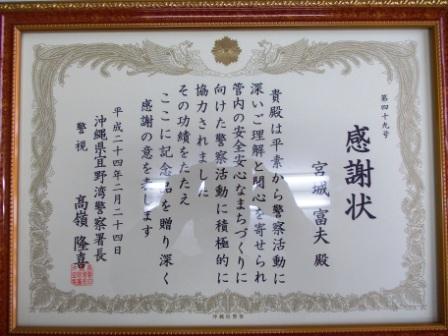 第四十九号
感謝状
宮城富夫殿
貴殿は平素から警察活動に
深いご理解と関心を寄せられ
管内の安全安心なまちづくりに
向けた警察活動に積極的に
協力されました
その功績をたたえ
ここに記念品を贈り深く
感謝の意を表します
平成二十四年二月二十四日
沖縄県宜野湾警察署長
警視 高嶺隆喜